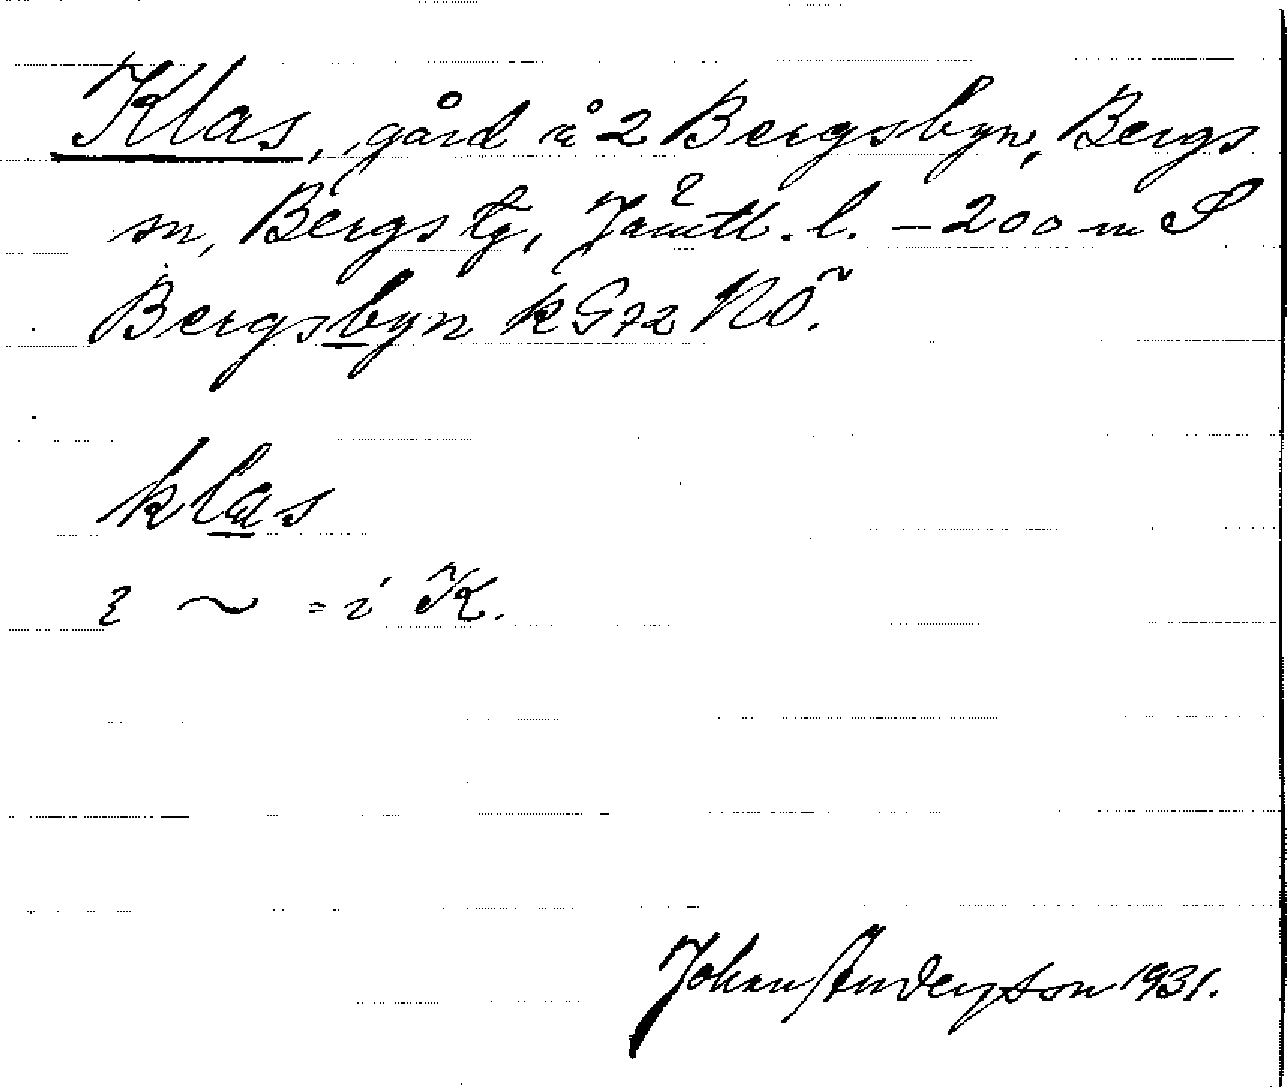 Klas, gård å 2 Bergsbyn, Bergs
sn, Bergs tg, Jämtl. l. – 200 m S
Bergsbyn k G72 NO.
klas
i ~ = i K.
Johan Anderson 1931.